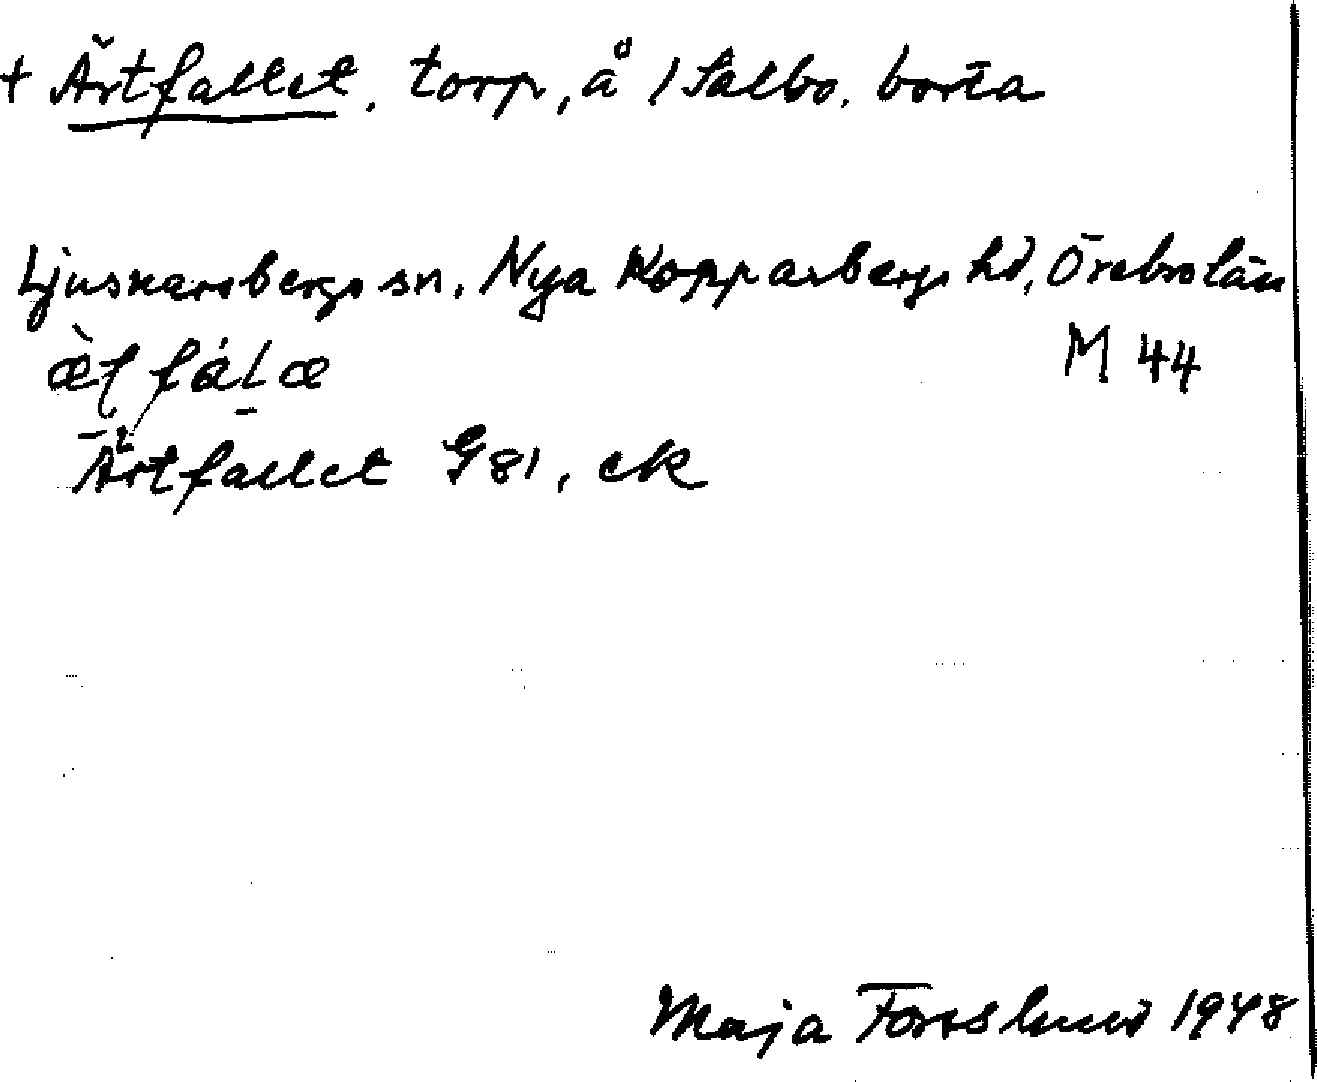 + Ärtfallet, torp, å 1 Salbo. borta
Ljusnarsbergs sn. Nya Kopparbergs hd, Örebro län
æ̀ʈfáḷæ M 44
Ärtfallet G 81, ek
Maja Forsslund 1948